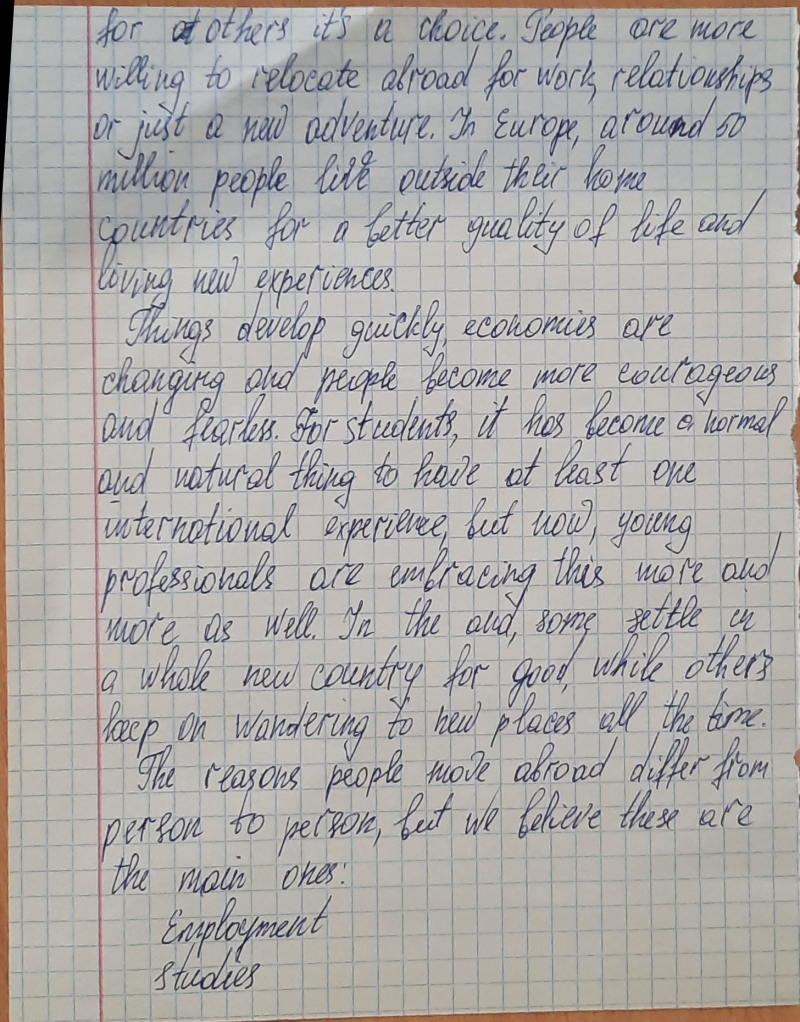 for others it's a choice. People are more
willing to relocate abroad for work, relationships
or just a new adventure. In Europe, around 50
million people live outside their home
countries for a better quality of life and
living new experiences.
Things develop quickly, economies are
changing and people become more courageous
and fearless. For students, it has become a normal
and natural thing to have at least one
international experience, but now, young
professionals are embracing this more and
more as well. In the and, some settle in
a whole new country for good, while others
keep on wandering to new places all the time.
The reasons people move abroad differ from
person to person, but we believe these are
the main ones:
Employment
Studies